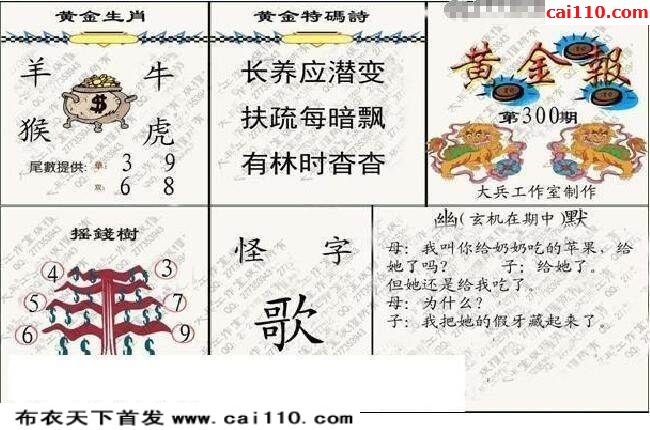 cai110.com
黄金生肖
羊 牛
$
猴 虎
尾數提供: 单: 3 9
双: 6 8
黄金特碼詩
长养应潜变
扶疏每暗飘
有林时杳杳
黄金報
第300期
大兵工作室制作
摇錢樹
4 3
5 7
6 9
怪 字
歌
幽(玄机在期中)默
母：我叫你给奶奶吃的苹果，给
她了吗？ 子：给她了。
但她还是给我吃了。
母：为什么？
子：我把她的假牙藏起来了。
布衣天下首发 www.cai110.com